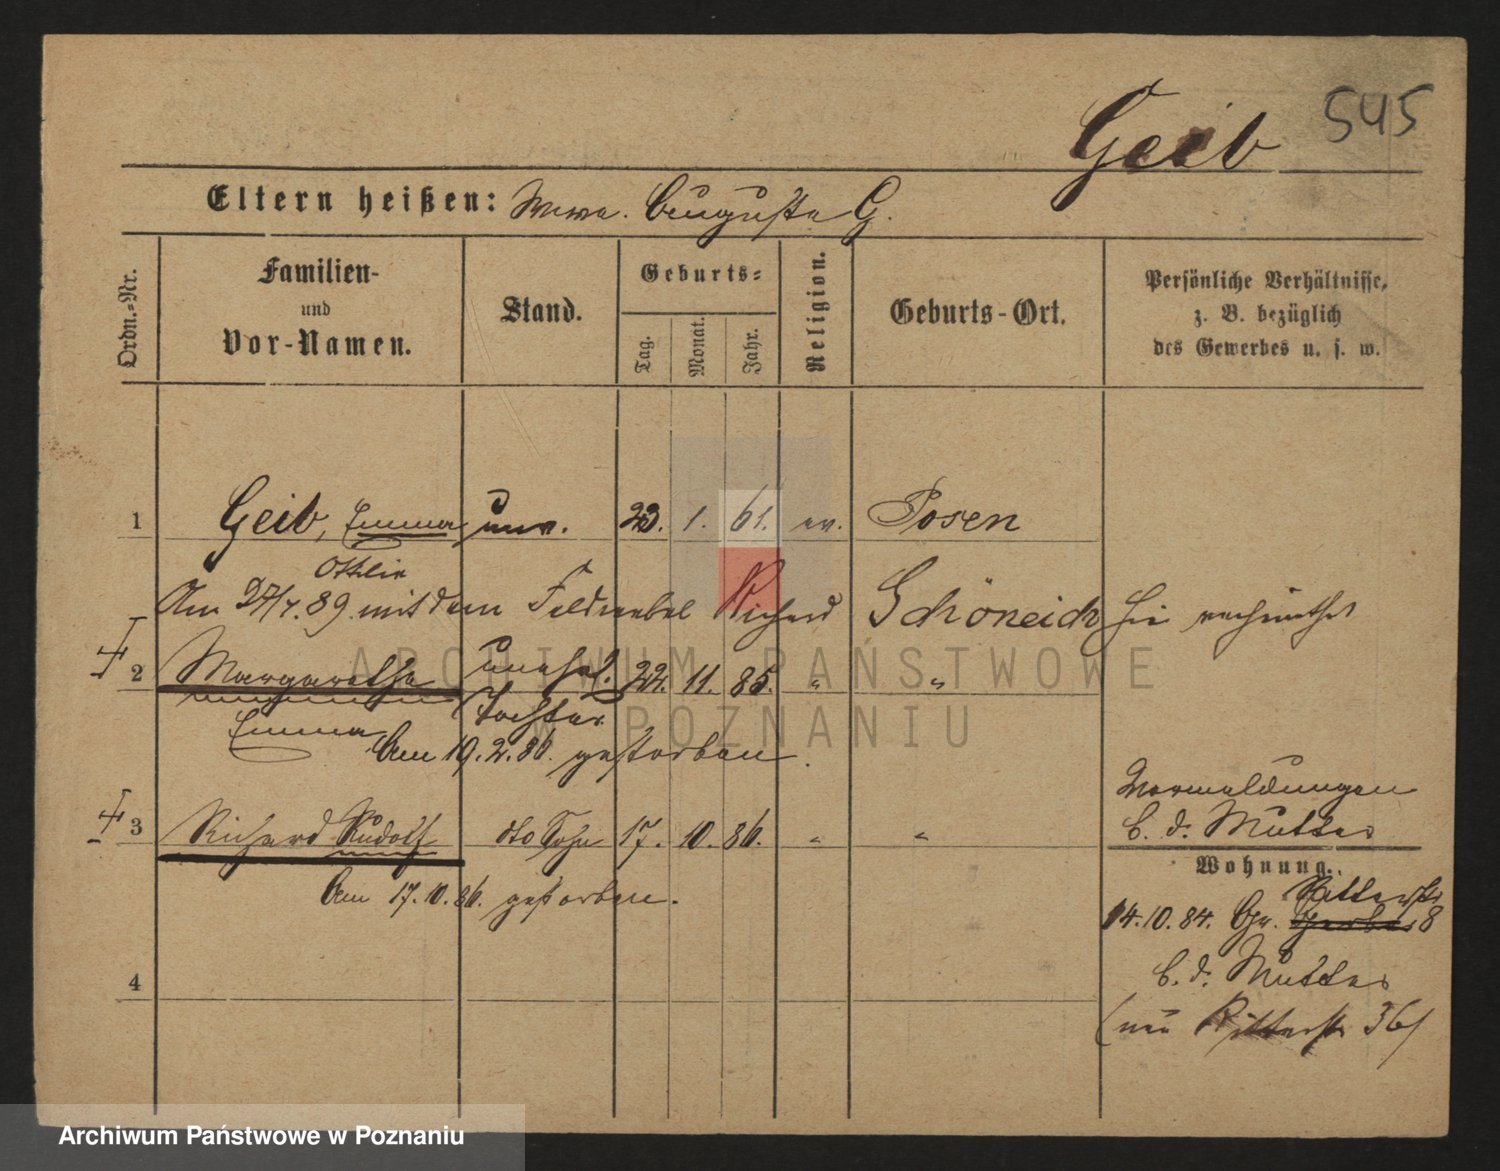 Geib 545
Eltern heißen: Wwe. Auguste G.
Ordn.-Nr.
Familien-
und
Vor-Namen.
Stand.
Geburts-
Tag.
Monat.
Jahr.
Religion.
Geburts-Ort.
Persönliche Verhältnisse,
z. B. bezüglich
des Gewerbes u. s. w.
1 Geib, Emma unv. 23. 1. 61. ev. Posen
Ottilie
Am 27/7.89 mit dem Feldwebel Richard Schöneich hier verheirathet
2 Margaretha unehel. 22. 11. 85. " "
Emma Tochter
Am 19.2.86. gestorben.
3 Richard Rudolf dto Sohn 17. 10. 86. " "
Am 17.10.86. gestorben.
4
b. d. Mutter
Wohnung.
Ritterstr
14.10.84. Gr. 8
b. d. Mutter
(neu Ritterstr 36)
ARCHIWUM PAŃSTWOWE
W POZNANIU
Archiwum Państwowe w Poznaniu